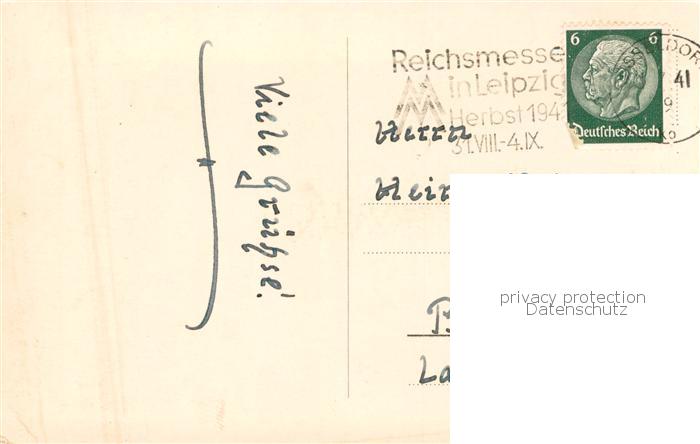 Viele Grüße!
Reichsmesse
in Leipzig
Herbst 194
31.VIII.-4.IX.
6 6
Deutsches Reich
41
Herrn
privacy protection
Datenschutz